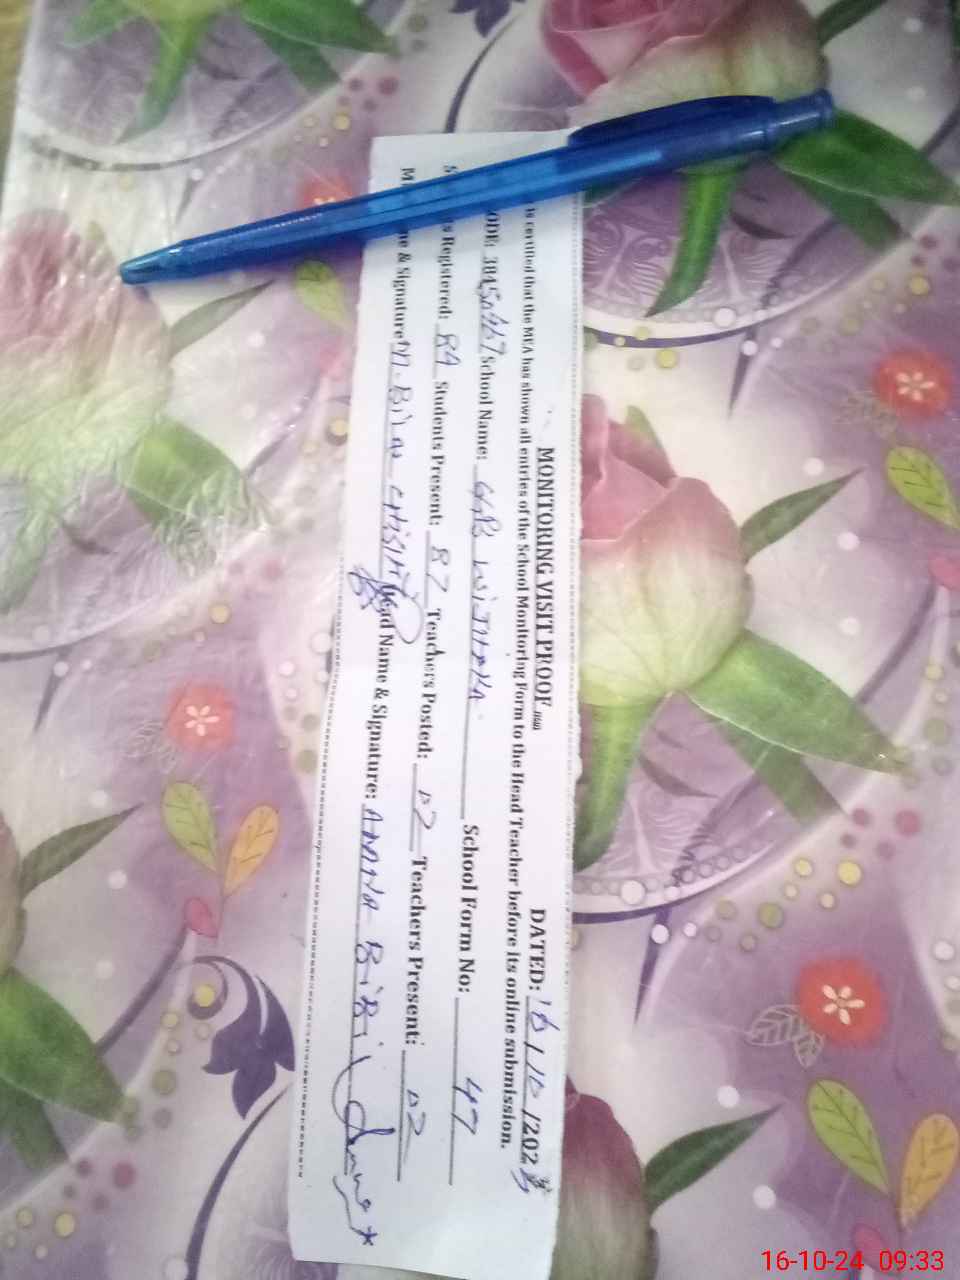 MONITORING VISIT PROOF DATED: 16/10/202
is certified that the MEA has shown all entries of the School Monitoring Form to the Head Teacher before its online submission.
ODE: 38450447 School Name: GGPS School Form No: 47
s Registered: 84 Students Present: 87 Teachers Posted: 02 Teachers Present: 02
e & Signature: M. Bilas CHISHTI Head Name & Signature: AMNA BiBi
16-10-24 09:33